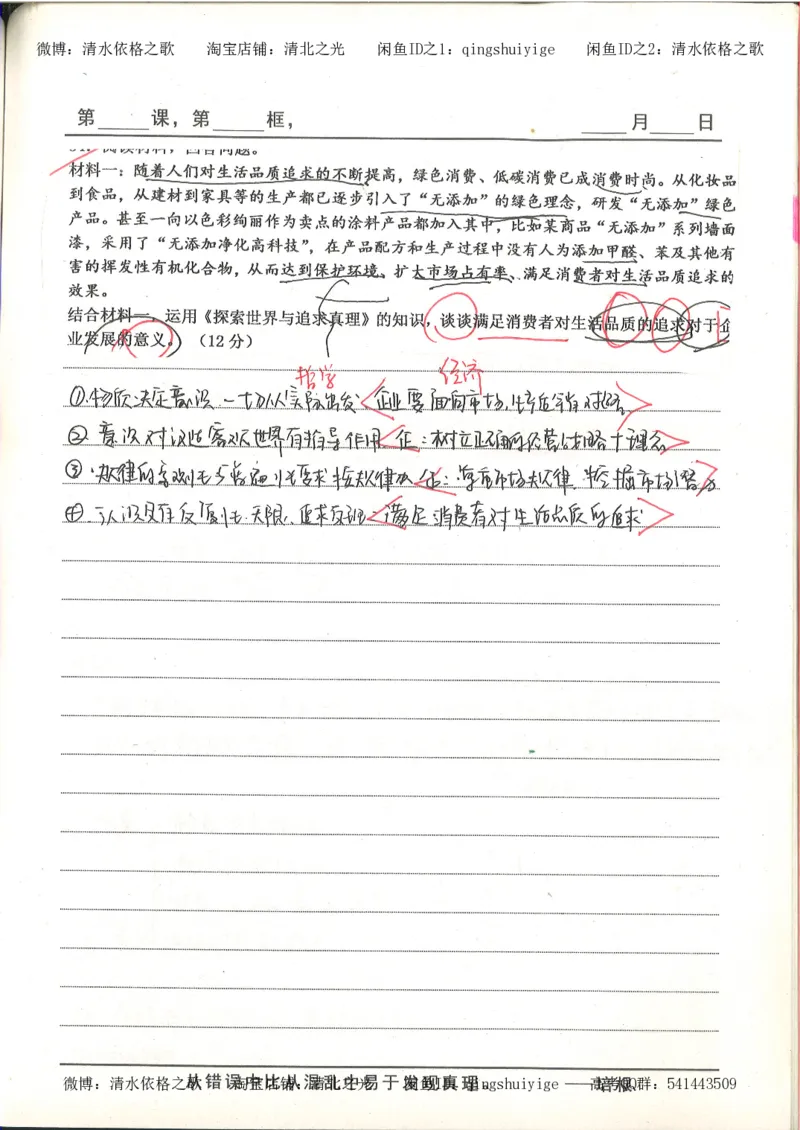 微博：清水依格之歌 淘宝店铺：清北之光 闲鱼ID之1：qingshuiyige 闲鱼ID之2：清水依格之歌
第____课，第____框， ____月____日
阅读材料，回答问题。
材料一：随着人们对生活品质追求的不断提高，绿色消费、低碳消费已成消费时尚。从化妆品
到食品，从建材到家具等的生产都已逐步引入了“无添加”的绿色理念，研发“无添加”绿色
产品。甚至一向以色彩绚丽作为卖点的涂料产品都加入其中，比如某商品“无添加”系列墙面
漆，采用了“无添加净化高科技”，在产品配方和生产过程中没有人为添加甲醛、苯及其他有
害的挥发性有机化合物，从而达到保护环境、扩大市场占有率、满足消费者对生活品质追求的
效果。
结合材料一，运用《探索世界与追求真理》的知识，谈谈满足消费者对生活品质的追求对于企
业发展的意义。（12分）
哲学 经济
①物质决定意识 一切从实际出发 企业要面向市场，生产适销对路
②意识对改造客观世界有指导作用 企：树立正确的经营战略+理念
③规律的客观性与普遍性要求按规律办 企：遵市场规律 挖掘市场潜力
④认识具有反复性、无限、追求真理：满足消费者对生活品质的追求
从错误中比从混乱中易于发现真理。——培根
微博：清水依格之歌 淘宝店铺：清北之光 闲鱼ID：qingshuiyige QQ群：541443509